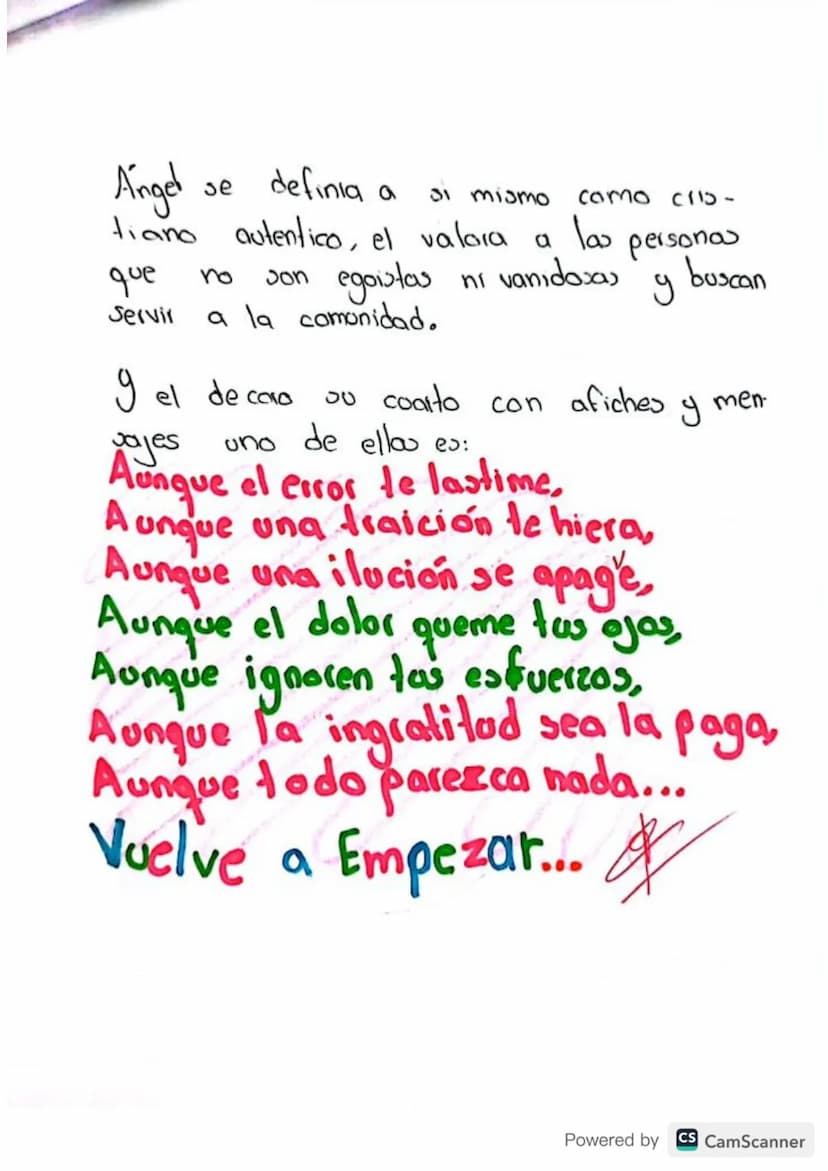 Ángel se definia a si mismo como cris-
tiano autentico, el valora a las personas
que no son egoistas ni vanidosas y buscan
servir a la comunidad.
Y el decoro su cuarto con afiches y men-
sajes uno de ellos es:
Aunque el error te lastime,
Aunque una traición te hiera,
Aunque una ilución se apague,
Aunque el dolor queme tus ojos,
Aunque ignoren tus esfuerzos,
Aunque la ingratitud sea la paga,
Aunque todo parezca nada...
Vuelve a Empezar...
Powered by CS CamScanner